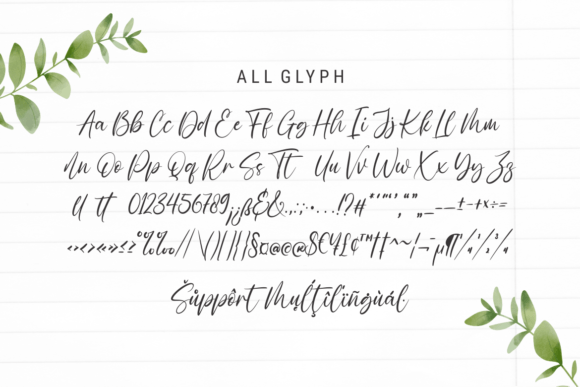 ALL GLYPH
Aa Bb Cc Dd Ee Ff Gg Hh Ii Jj Kk Ll Mm
Nn Oo Pp Qq Rr Ss Tt Uu Vv Ww Xx Yy Zz
ll tt 0123456789¡¿ß&.,:;·•…!?#*"'‘’‚“”„_–—±-+×÷=
‹›«»<>≤≥%‰/\()|{}[]§¤@©®$€¥£¢™†‡^~¦¬µ¶¼½¾
Šüppôrt Mµļţîlïñğùál.